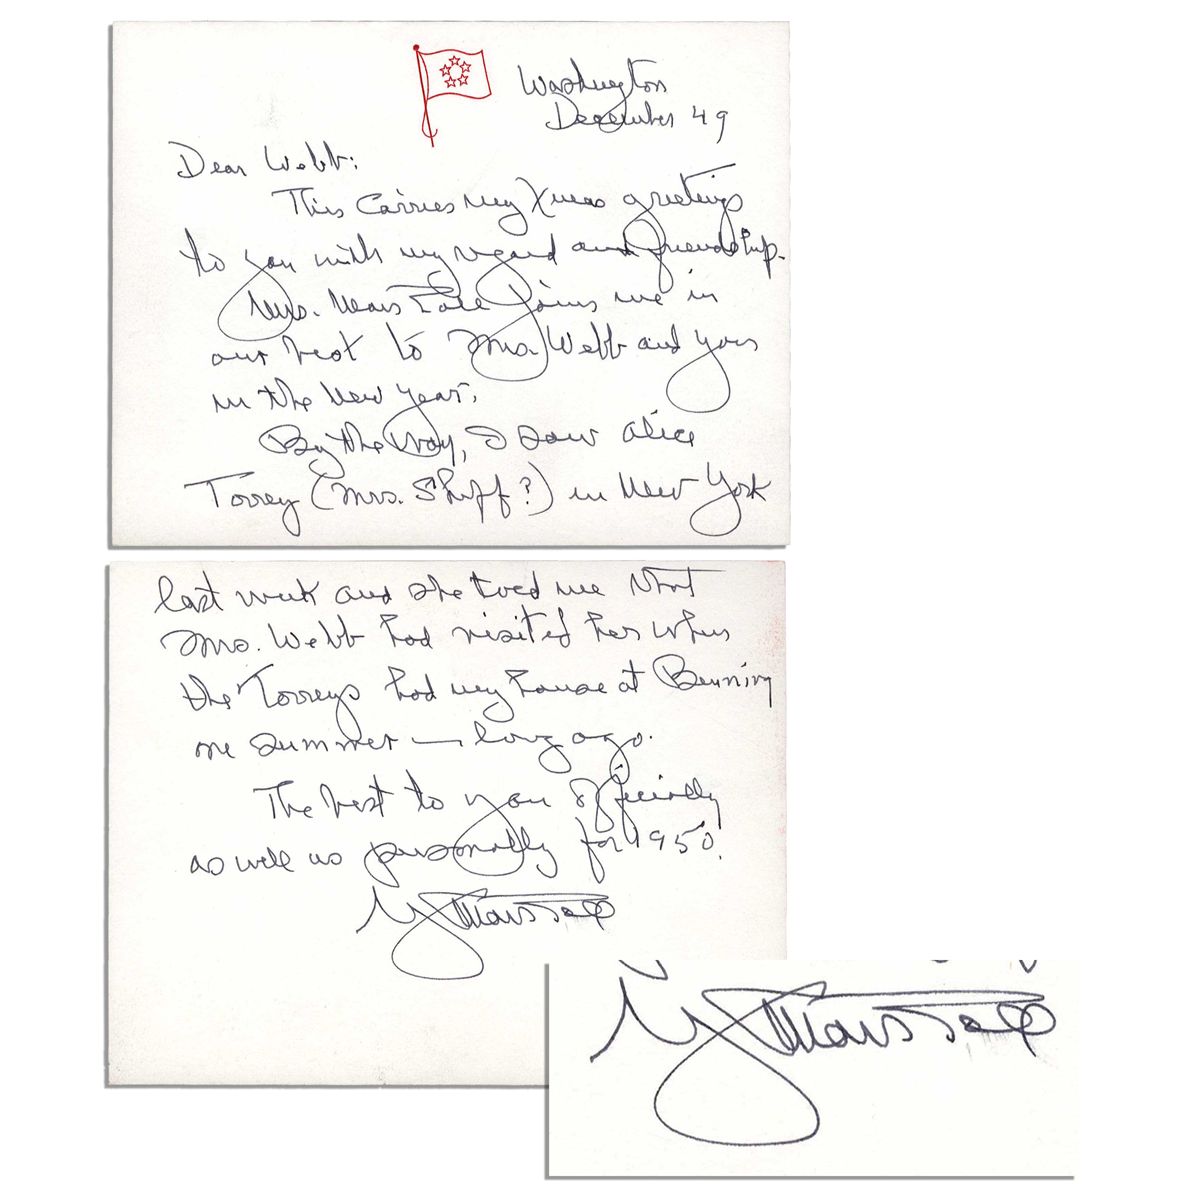 Washington
December 49
Dear Webb:
This carries my Xmas greetings
to you with my regard and friendship.
Mrs. Marshall joins me in
our best to Mrs. Webb and you
in the New Year.
By the way, I saw Alice
Torrey (Mrs. Shiff?) in New York
last week and she told me that
Mrs. Webb had visited her when
the Torreys had my house at Benning
one summer — long ago.
The best to you officially
as well as personally for 1950.
G Marshall
G Marshall